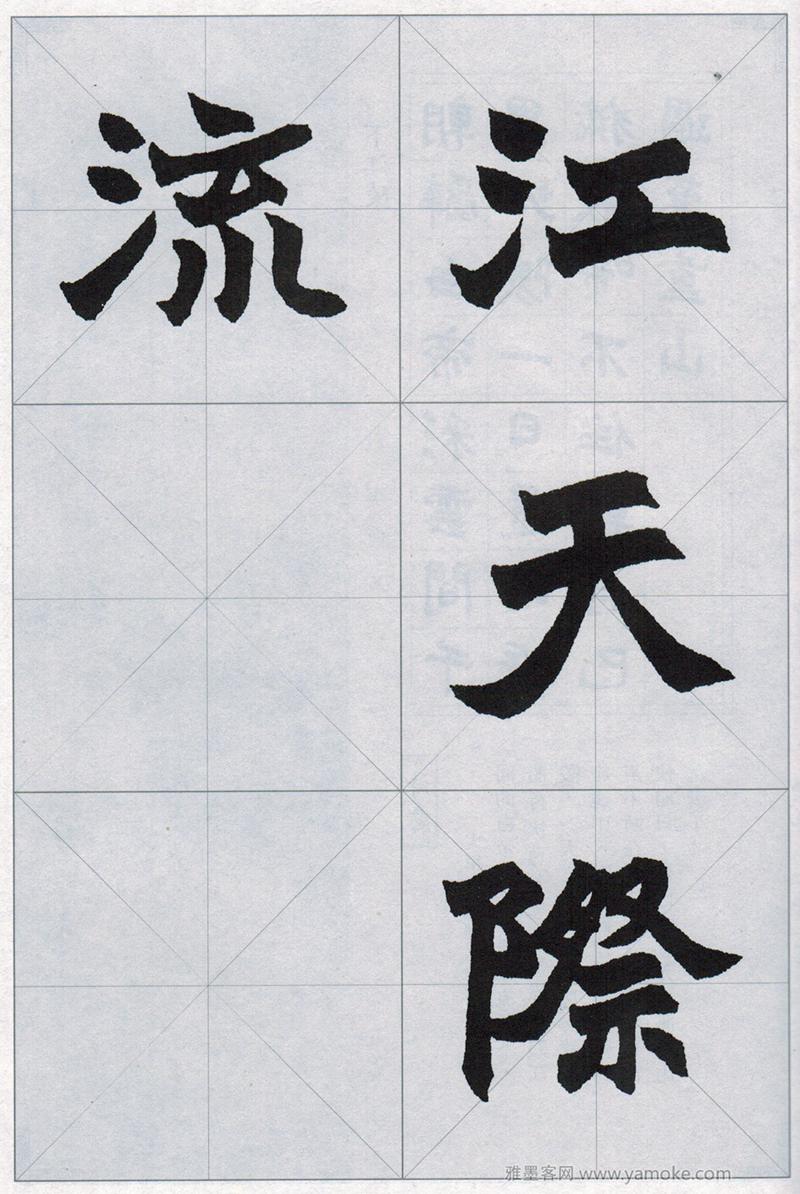 江天際
流
雅墨客网 www.yamoke.com